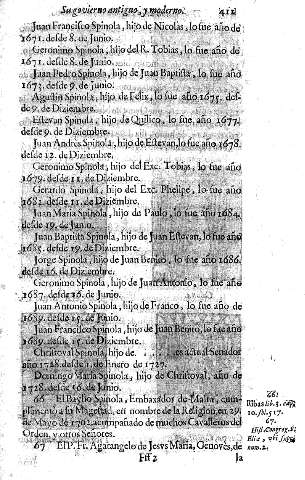 Su govierno antiguo, y moderno. 412
Juan Francisco Spinola, hijo de Nicolas, lo fue año
1671. desde 8. de Junio.
Geronimo Spinola, hijo del R. Tobias, lo fue año
1671. desde 8. de Junio.
Juan Pedro Spinola, hijo de Juan Baptista, lo fue año
1673. desde 9. de Junio.
Agustin Spinola, hijo de Felix, lo fue año 1675. des-
de 9. de Diziembre.
Estevan Spinola, hijo de Quilico, lo fue año 1677.
desde 9. de Diziembre.
Juan Andrés Spinola, hijo de Estevan, lo fue año 1678.
desde 12. de Diziembre.
Geronimo Spinola, hijo del Exc. Tobias, lo fue año
1679. desde 11. de Diziembre.
Gerardo Spinola, hijo del Exc. Phelipe, lo fue año
1681. desde 11. de Diziembre.
Juan Maria Spinola, hijo de Paulo, lo fue año 1684.
desde 19. de Junio.
Juan Baptista Spinola, hijo de Juan Estevan, lo fue año
1685. desde 19. de Diziembre.
Jorge Spinola, hijo de Juan Benito, lo fue año 1686.
desde 16. de Diziembre.
Geronimo Spinola, hijo de Juan Antonio, lo fue año
1687. desde 16. de Junio.
Juan Antonio Spinola, hijo de Franco, lo fue año de
1689. desde 15. de Junio.
Juan Francisco Spinola, hijo de Juan Benito, lo fue año
1689. desde 15. de Diziembre.
Christoval Spinola, hijo de . . . . es actual Senador
año 1728. desde 1. de Enero de 1727.
Domingo Maria Spinola, hijo de Christoval, año de
1728. desde 16. de Junio.
66 El Baylio Spinola, Embaxador de Malta, cum-
plimentó a su Magestad, en nombre de la Religion, en 29.
de Mayo de 1702. acompañado de muchos Cavalleros del
Orden, y otros Señores.
67 El P. Fr. Agatangelo de Jesus Maria, Genovés, de
Fff 2 la
661
lib. 3.
10. fol. 517.
67.
Hist. Congreg. S.
Eliæ,